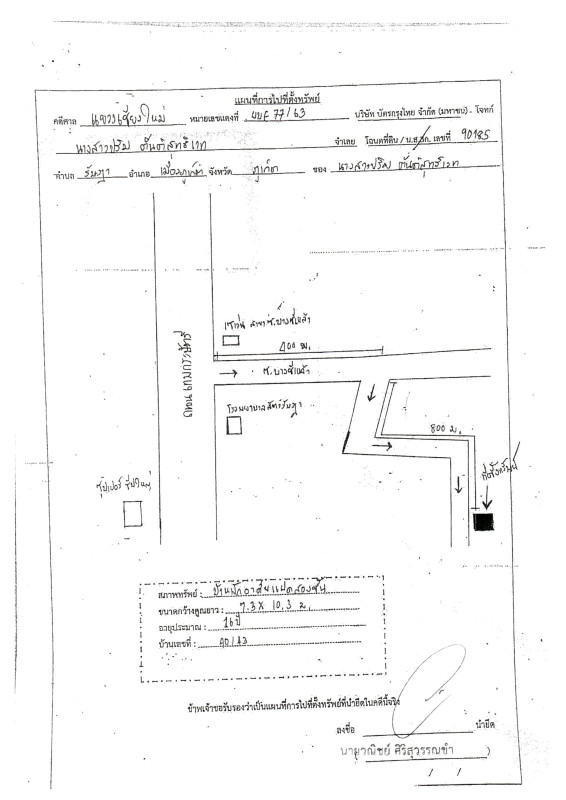 แผนที่การไปที่ตั้งทรัพย์
คดีศาล แขวงเชียงใหม่ หมายเลขแดงที่ 77/63 บริษัท บัตรกรุงไทย จำกัด (มหาชน) - โจทก์
นางสาวปริม ตันติสุทธิเวท จำเลย โฉนดที่ดิน / น.ส.3ก. เลขที่ 90185
ตำบล รัษฎา อำเภอ เมืองภูเก็ต จังหวัด ภูเก็ต ของ นางสาวปริม ตันติสุทธิเวท
เซเว่น สาขา ซ.บางชีเหล้า
400 ม.
ถนน เทพกระษัตรี
ซ.บางชีเหล้า
โรงพยาบาลสัตว์รัษฎา
800 ม.
ที่ตั้งทรัพย์
ซุปเปอร์ชีปใหญ่
สภาพทรัพย์ : บ้านพักอาศัยแฝดสองชั้น
ขนาดกว้างคูณยาว : 7.3 X 10.3 ม.
อายุประมาณ : 16 ปี
บ้านเลขที่ :
ข้าพเจ้าขอรับรองว่าเป็นแผนที่การไปที่ตั้งทรัพย์ที่นำยึดในคดีนี้จริง
ลงชื่อ นำยึด
นายวาณิชย์ ศิริสุวรรณขำ )
/ /